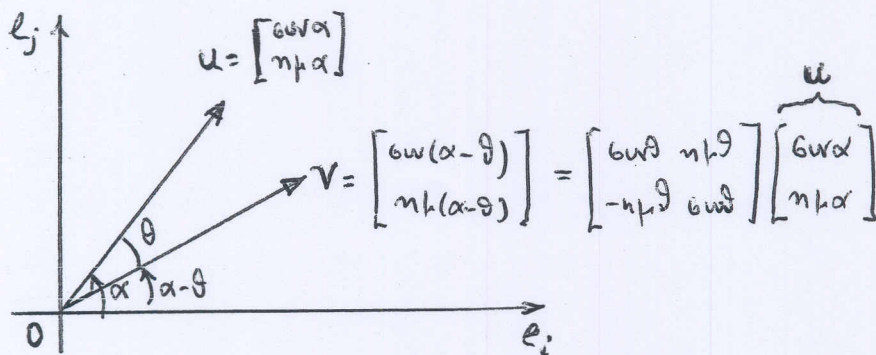 e_j
u = [συνα
ημα]
v = [συν(α-θ)
ημ(α-θ)] = [συνθ ημθ
-ημθ συνθ] [συνα
ημα]
u
θ
α
α-θ
O
e_i